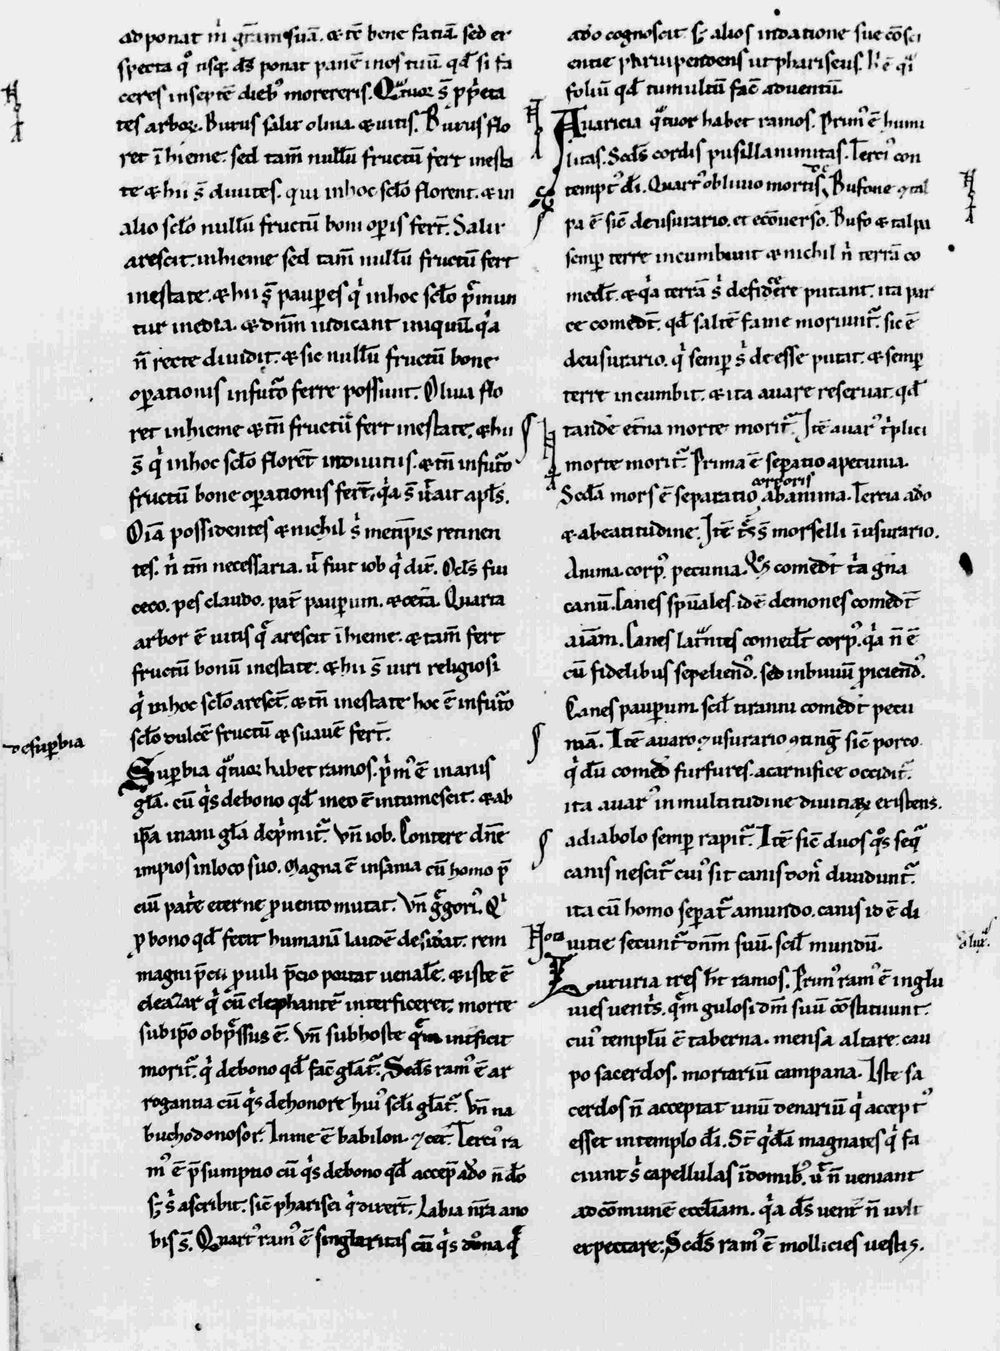 adponat m̄ gr̄am suā. ⁊ tē bene faciā. sed ex
specta qͦ usqꝫ ds̄ ponat panē in os tuū. qd̄ si fa
ceres in septē dieb; morereris. Quatuor s̄t p̄p̄eta
tes arbor. Buxus salix oliua. ⁊ uitis. Buxus flo
ret ī hieme. sed tam̄ nullū fructū fert in esta
te ⁊ hii s̄t diuites. qui in hoc sc̄lo florent. ⁊ in
alio sc̄lo nullū fructū boni oꝑis fert̄. Salix
arescit in hieme sed tam̄ nullū fructū fert
in estate. ⁊ hii s̄t pauꝑes qͥ in hoc sc̄lo p̄mun
tur inedia. ⁊ dn̄m iudicant iniquū. qͥa
n̄ recte diuidit. ⁊ sic nullū fructū bone
oꝑationis in futͦo ferre possunt. Oliua flo
ret in hieme ⁊ tn̄ fructū fert in estate. ⁊ hii
s̄t qͥ in hoc sc̄lo florēt in diuitiis. ⁊ tn̄ in futͦo
fructū bone oꝑationis fert̄. qͥa s̄t ū ait apl̄s.
Oīa possidentes ⁊ nichil sͥ metip̄is retinen
tes. n̄ tm̄ necessaria. ū fuit iob qͥ dix̄. Ocl̄s fui
ceco. pes claudo. pat̄ pauꝑum. ⁊ cet̄a. Quarta
arbor ē uitis qͣ arescit ī hieme. ⁊ tam̄ fert
fructū bonū in estate. ⁊ hii s̄t uiri religiosi
qͥ in hoc sc̄lo arescūt. ⁊ tn̄ in estate hoc ē in futͦo
sc̄lo dulcē fructū ⁊ suauē fert̄.
de suꝑbia
Suꝑbia qͣtuor habet ramos. pͥmꝰ ē inanis
gl̄a. cū qͥs de bono qd̄ in eo ē intumescit. ⁊ ab
ip̄a inani gl̄a dep̄mit᷑. Vn̄ iob. Contere dn̄e
impios in loco suo. Magna ē insania cū homo p̄
ciū pat̄e eterne ꝓ uento mutat. Vn̄ gͣgori. Qͥ
ꝓ bono qd̄ fecit humanā laudē desid̄at. rem
magni p̄cii ꝓ uili p̄cio portat uenalē. ⁊ iste ē
eleazar qͥ cū elephantē interficeret. morte
sub ip̄o obp̄ssus ē. Vn̄ sub hoste qͣm int̄ficit
morit᷑. qͥ de bono qd̄ fac̄ gl̄at᷑. Scd̄s ramꝰ ē ar
rogantia cū qͥs de honore huiꝰ sc̄li gl̄at᷑. Vn̄ na
buchodonosor. Inme ē babilon. ⁊ cet̄. Tercꝰ ra
mꝰ ē p̄sumptio cū qͥs de bono qd̄ accep̄ a d̄o n̄ d̄o
s; sͥ ascribit. sic̄ pharisei qͥ dixert̄. Labia nr̄a a no
bis s̄t. Quartꝰ ramꝰ ē singl̄aritas cū qͥs dona qͣ
a d̄o cognoscit s; alios in datione sue cōsci
entie paruipendens ut phariseus. h̄ ē qͣi
foliū qd̄ tumultū fac̄ ad uentū.
Auaricia qͣtuor habet ramos. Primꝰ ē humi
litas. Scd̄s cordis pusillanimitas. Tercꝰ con
temptꝰ d̄i. Quartꝰ obliuio mortis. Bufone ⁊ tal
pa ē sic̄ de usurario. et ecōuerso. Bufo ⁊ talpa
semꝑ terre incumbunt ⁊ nichil n̄ terrā co
med̄t. ⁊ qͥa terrā sͥ defic̄e putant. ita par
ce comed̄t. qd̄ saltē fame moriunt᷑. sic ē
de usurario. qͥ semꝑ sͥ deesse putat. ⁊ semꝑ
terre incumbit. ⁊ ita auare reseruat. qd̄
tandē et̄na morte morit᷑. Itē auarꝰ tͥplici
morte morit᷑. Prima ē seꝑatio a pecunia.
Scd̄a mors ē separatio corporis ab anima. Tercia a d̄o
⁊ a beatitudine. Itē tͤs s̄t morselli ī usurario.
Anima. corpꝰ. pecunia. Qͦs comed̄t tͥa gn̄a
canū. Canes sp̄uales. id ē demones comed̄t
aīam. Canes latͣntes comed̄t corpꝰ. qͥa n̄ ē
cū fidelibus sepeliendꝰ. sed in biuiū ꝓiciendꝰ.
Canes pauꝑum. scil̄ tiranni comed̄t pecu
niā. Itē auaro ⁊ usurario ↄtinḡ sic̄ porco
qͥ dū comed̄ furfures. a carnifice occidit᷑.
ita auarꝰ in multitudine diuitiaꝝ existens.
a diabolo semꝑ rapit᷑. Itē sic̄ duos qͦs seqͥt᷑
canis nescit᷑ cuiꝰ sit canis don̄ diuidunt᷑.
ita cū homo seꝑat᷑ a mundo. canis id ē di
Nota
uitie secunt᷑ dn̄m suū. scil̄ mundū.
Luxuria tres h̄t ramos. Primꝰ ramꝰ ē inglu
uies uentͥs. qͣm gulosi dm̄ suū cōstituunt.
cuiꝰ templū ē taberna. mensa altare. cau
po sacerdos. mortariū campana. Iste sa
cerdos n̄ acceptat unū denariū qͥ acceptꝰ
esset in templo d̄i. St̄ qͥdā magnates qͥ fa
ciunt sͥ capellulas ī domibꝫ. ū n̄ ueniant
ad cōmunē eccl̄iam. qͥa ds̄ uent̄ n̄ uult
expectare. Scd̄s ramꝰ ē mollicies uestis.